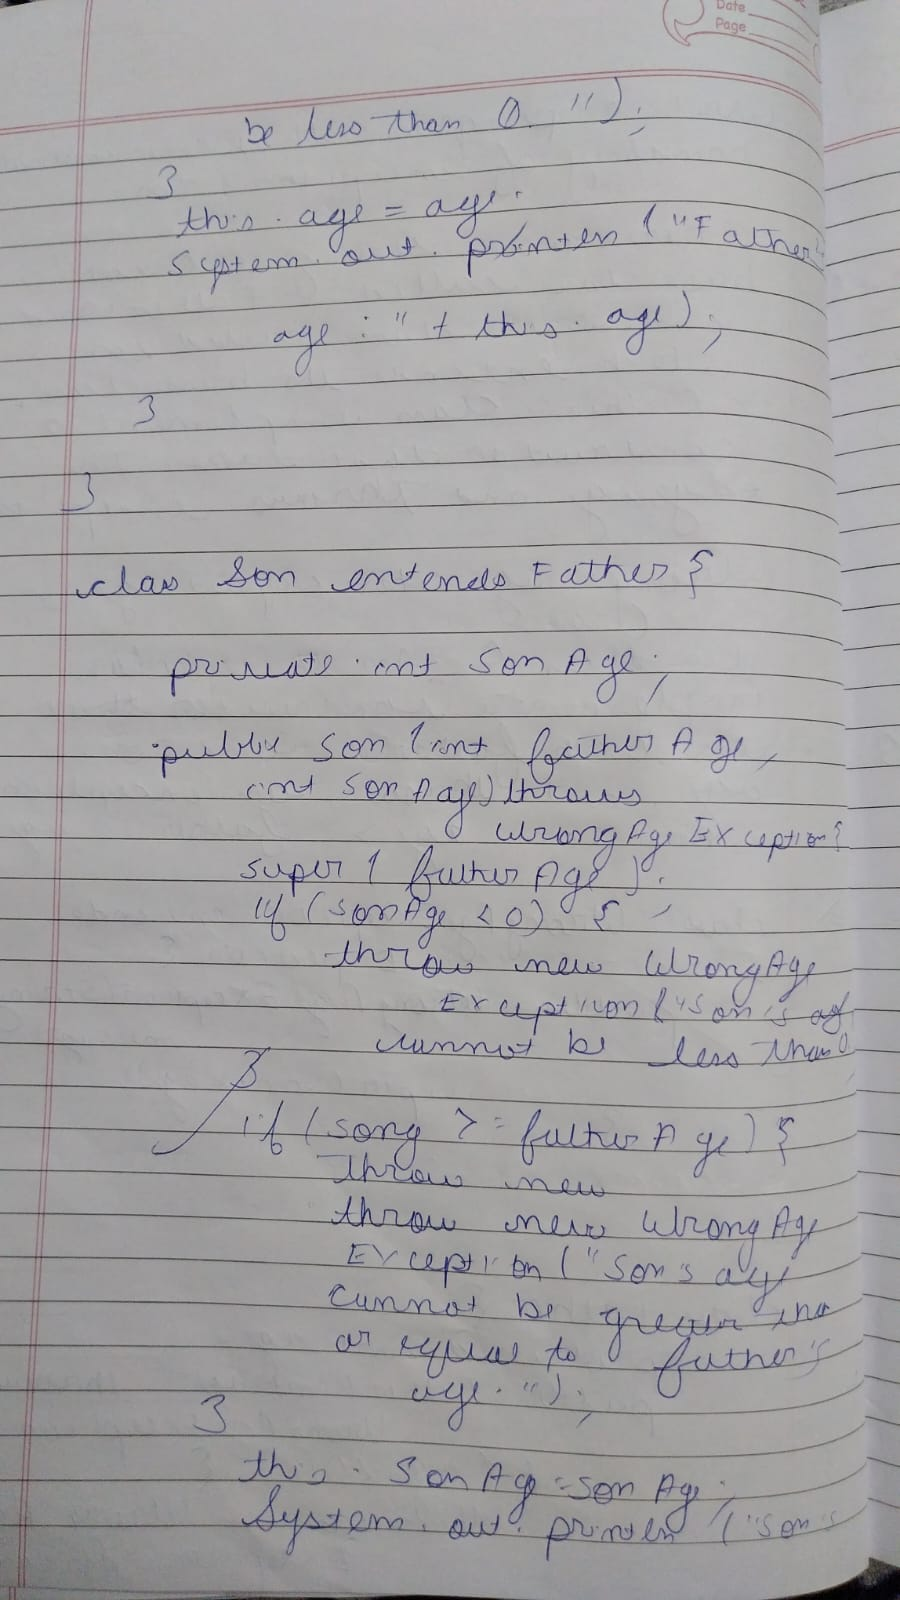 Date
Page
be less than 0. ");
}
this. age = age.
System. out. println ("Father's
age : " + this. age);
}
}
class Son extends Father {
private int Son Age;
public Son (int father A ge,
int Son A age) throws
Wrong Age Exception {
super ( father Age );
if (son Age < 0) {
throw new Wrong Age
Exception ("Son's age
cannot be less than 0
}
if (song >= father A ge) {
Throw new
throw new Wrong Age
Exception ("Son's age
cannot be greater tha
or equal to father's
age. ");
}
this. Son Age = son Age;
System. out. println ("Son's